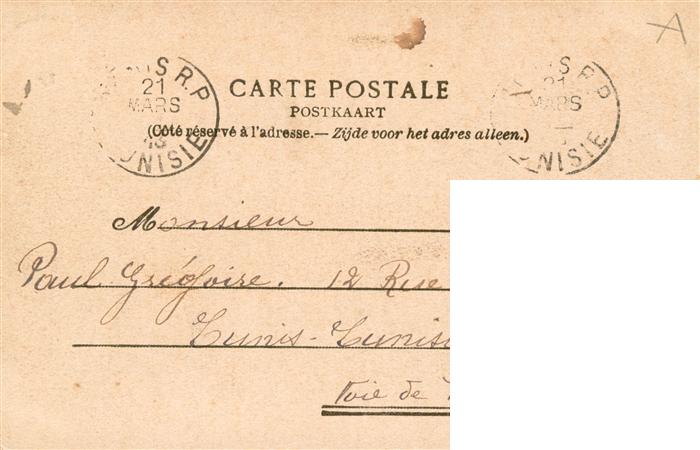 A
TUNIS R.P
21
MARS
TUNISIE
CARTE POSTALE
POSTKAART
(Côté réservé à l'adresse.— Zijde voor het adres alleen.)
TUNIS R.P
21
MARS
TUNISIE
Monsieur
Paul Grégoire. 12 Rue
Tunis-Tunisi
Voie de